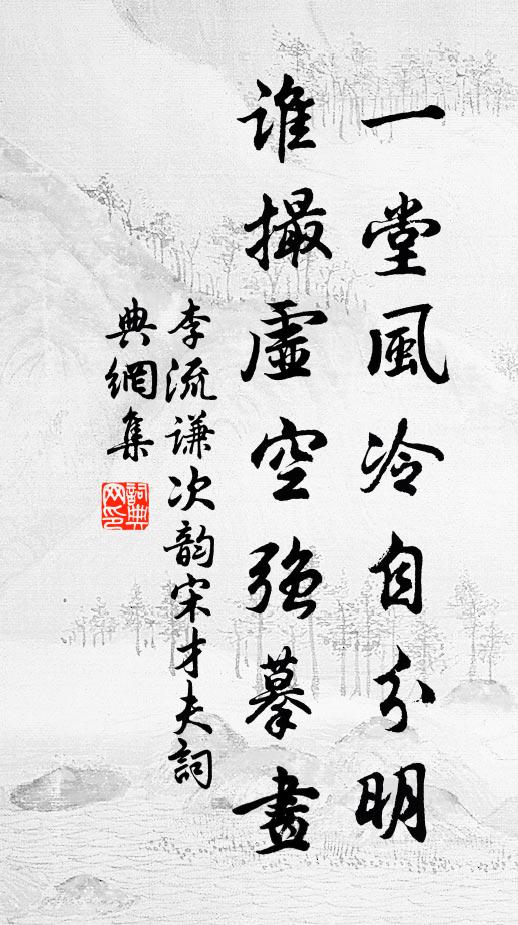 一堂風冷自分明
誰撮虛空強摹畫
李流谦次韵宋才夫詞
典網集
詞典
网印